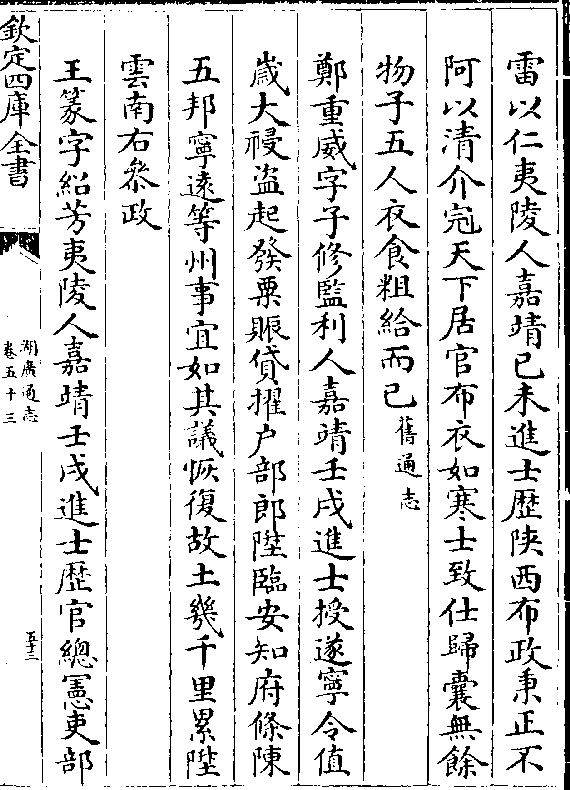 雷以仁夷陵人嘉靖己未進士歴陜西布政秉正不
阿以清介冠天下居官布衣如寒士致仕歸囊無餘
物子五人衣食粗給而已舊通志
鄭重威字子修監利人嘉靖壬戌進士授遂寧令值
歲大祲盗起發粟賑貸擢户部郎陞臨安知府條陳
五邦寧遠等州事宜如其議恢復故土幾千里累陞
雲南右叅政
王篆字紹芳夷陵人嘉靖壬戌進士歴官總憲吏部
欽定四庫全書
湖廣通志
卷五十三
五十三